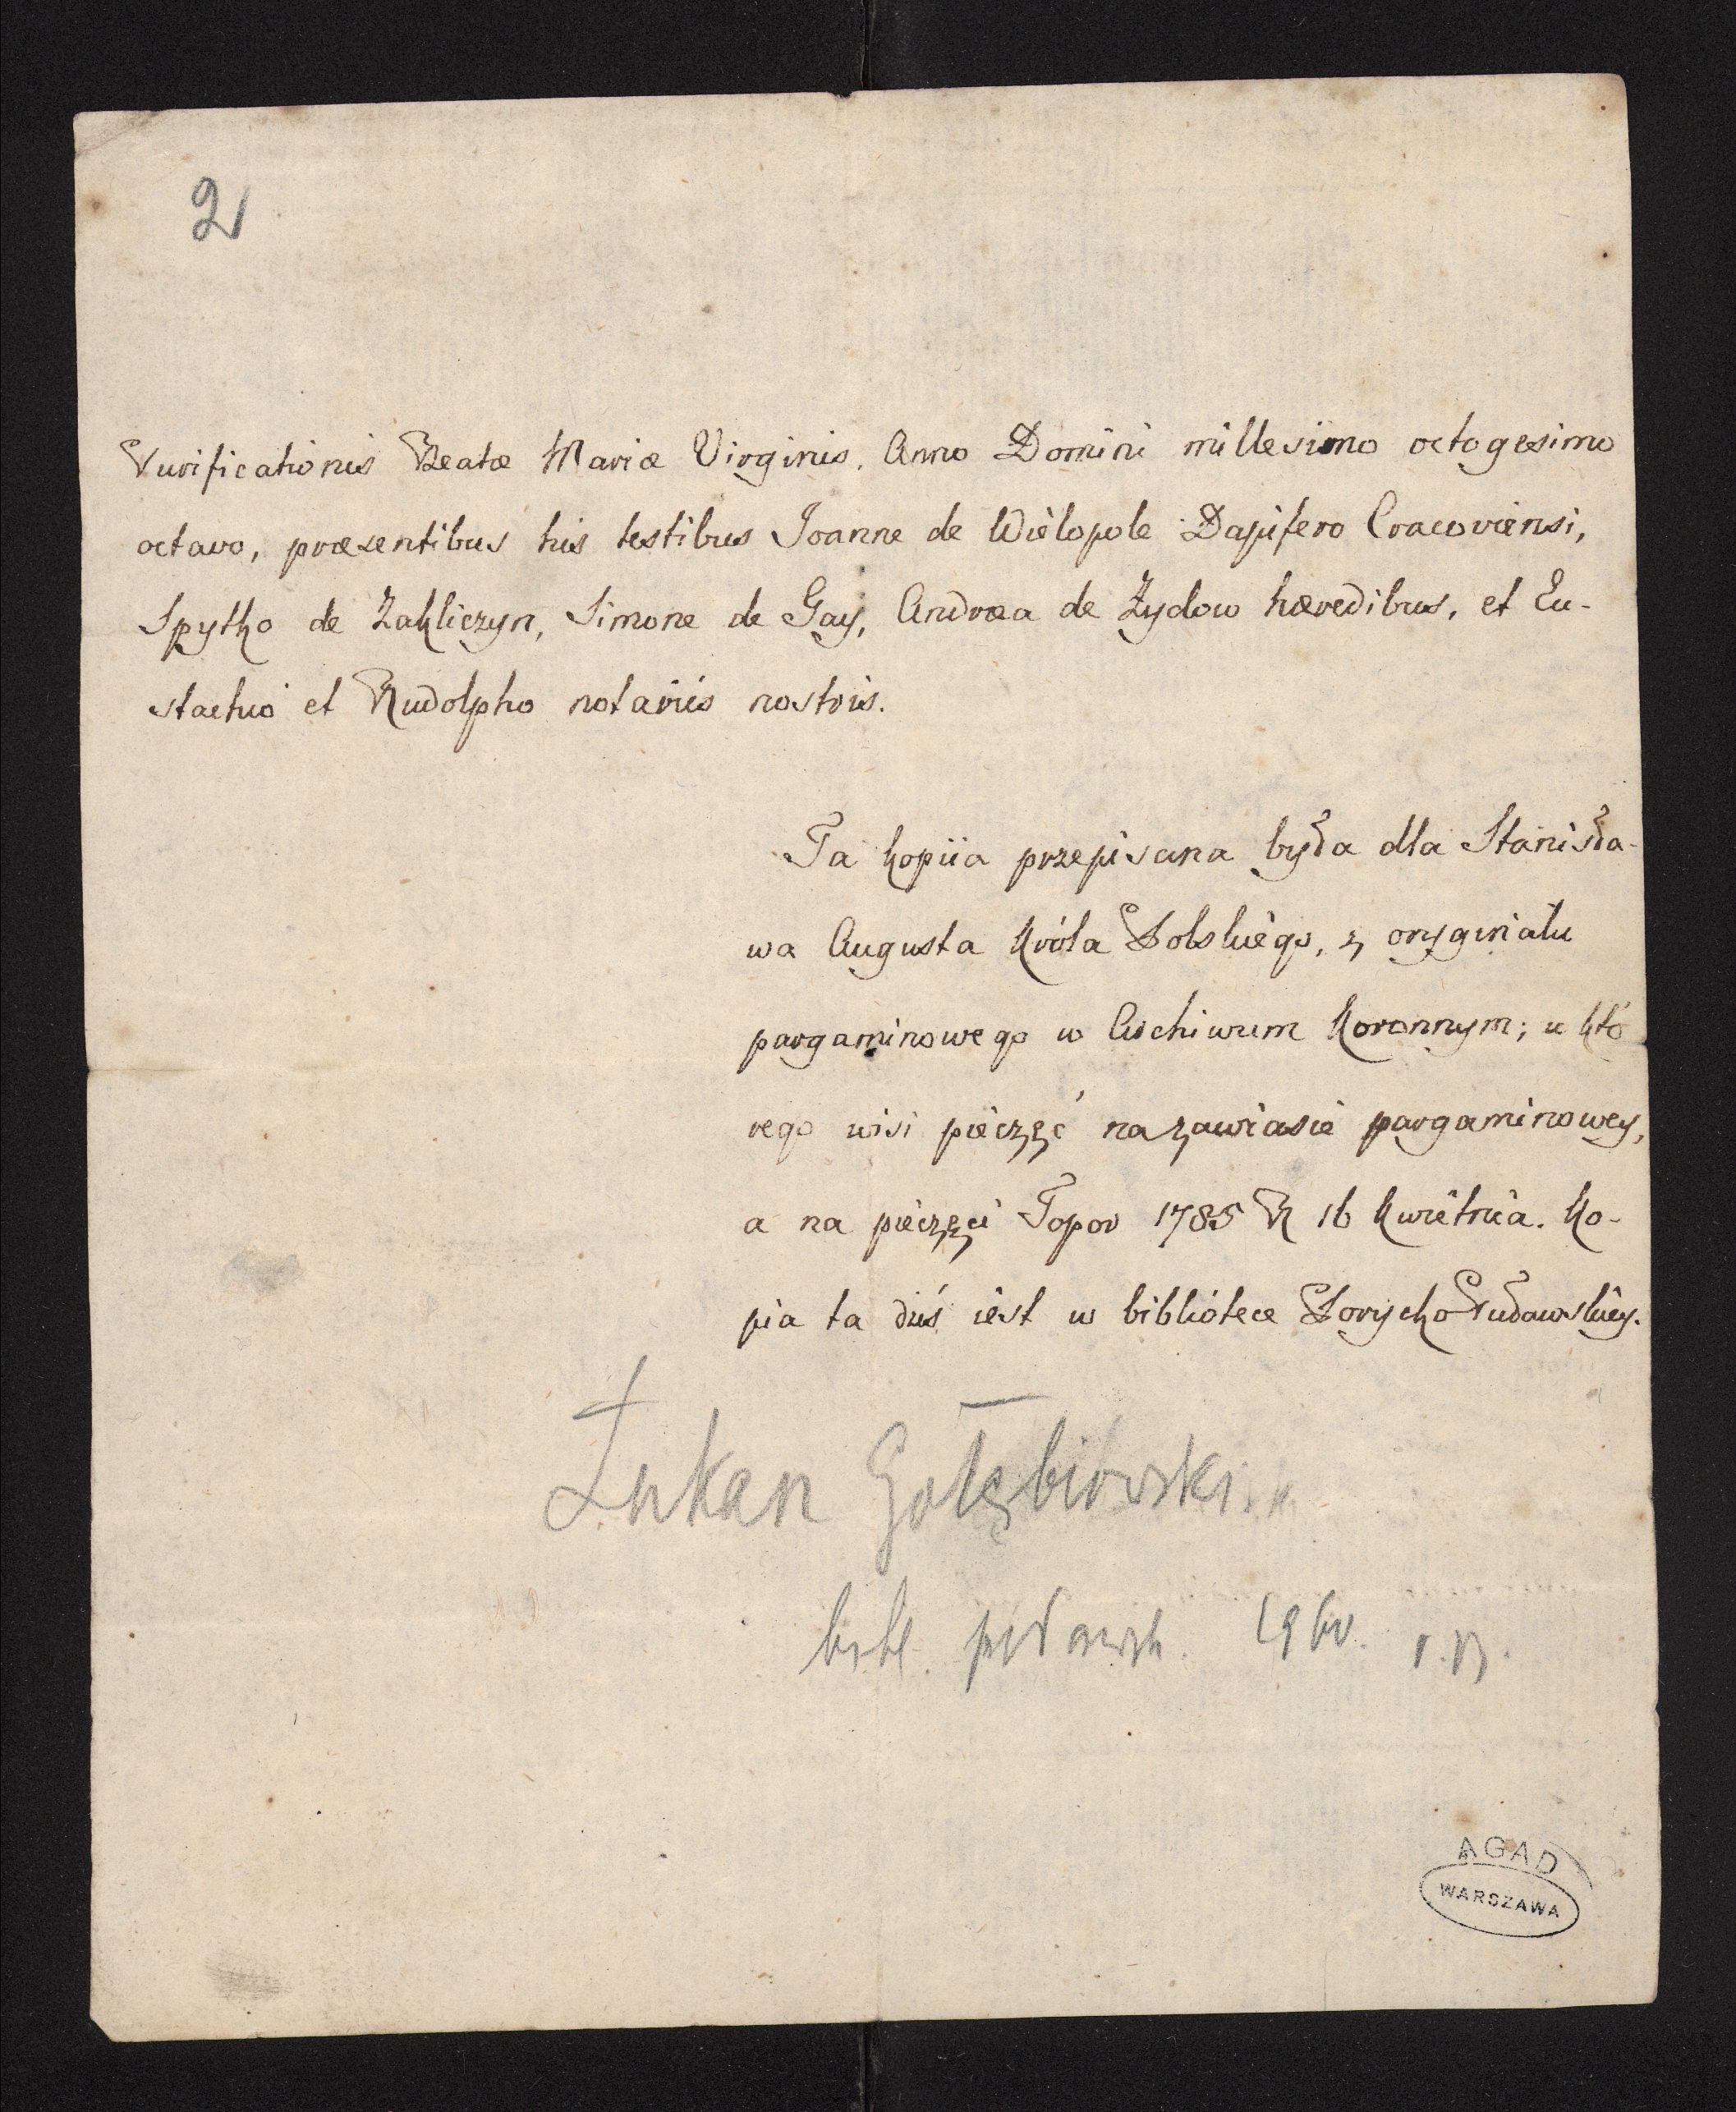 2
Purificationis Beatæ Mariæ Virginis. Anno Domini millesimo octogesimo
octavo, præsentibus his testibus Joanne de Wielopole Dapifero Cracoviensi,
Spytko de Zakliczyn, Simone de Gay, Andræa de Zydow hæredibus, et Eu-
stachio et Rudolpho notariis nostris.
Ta kopiia przepisana była dla Stanisła-
wa Augusta Króla Polskiego, z oryginału
pargaminowego w Archiwum Koronnym; u któ
rego wisi pieczęć na zawiasie pargaminowey,
a na pieczęci Topor 1785 R 16 Kwietnia. Ko-
pia ta dziś iest w bibliotece Porycko Puławskiey.
Łukasz Gołębiowski
bibl. puławsk.
AGAD
WARSZAWA